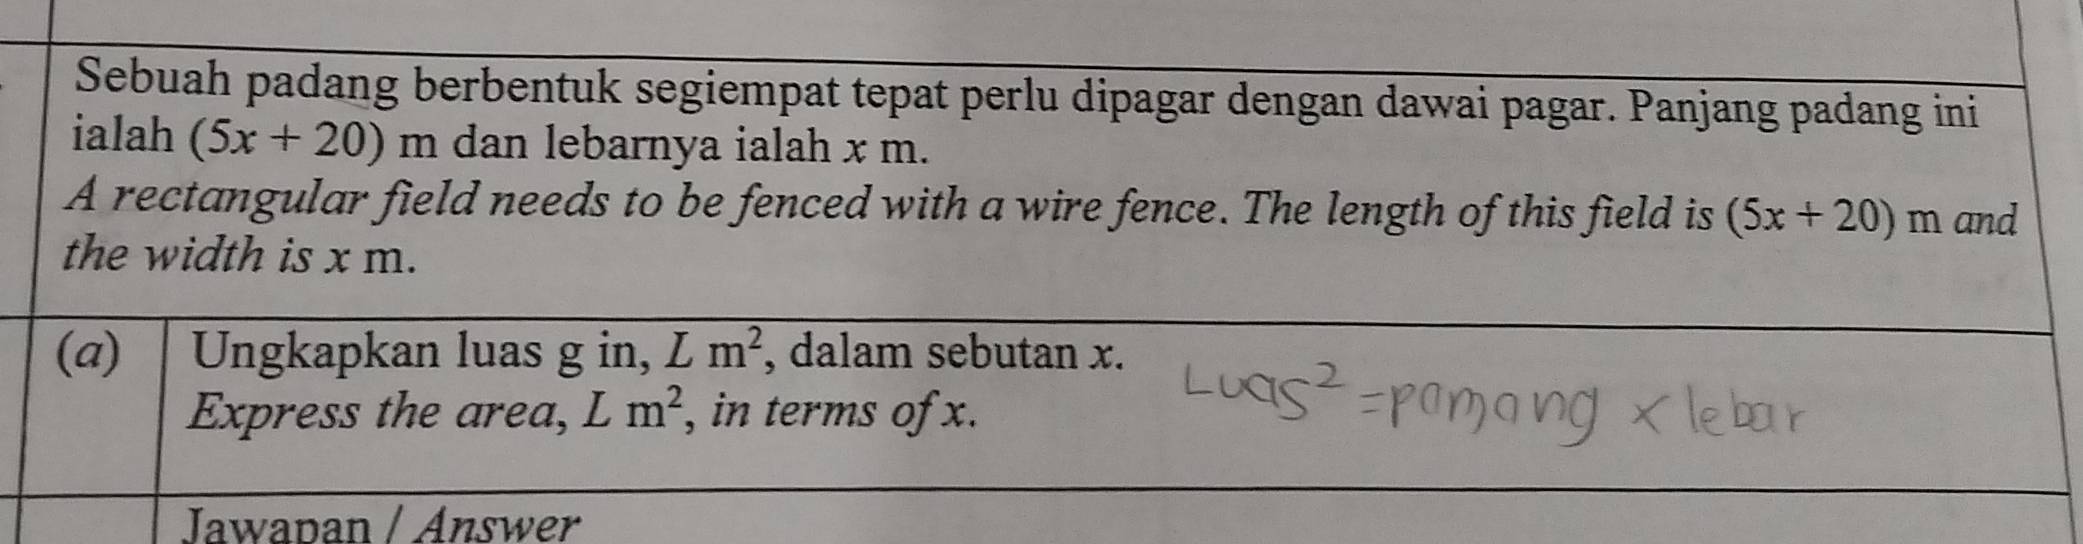 Sebuah padang berbentuk segiempat tepat perlu dipagar dengan dawai pagar. Panjang padang ini
ialah (5x + 20) m dan lebarnya ialah x m.
A rectangular field needs to be fenced with a wire fence. The length of this field is (5x + 20) m and
the width is x m.
(a) Ungkapkan luas g in, L m², dalam sebutan x.
Express the area, L m², in terms of x.
Luas² = panjang × lebar
Jawapan / Answer